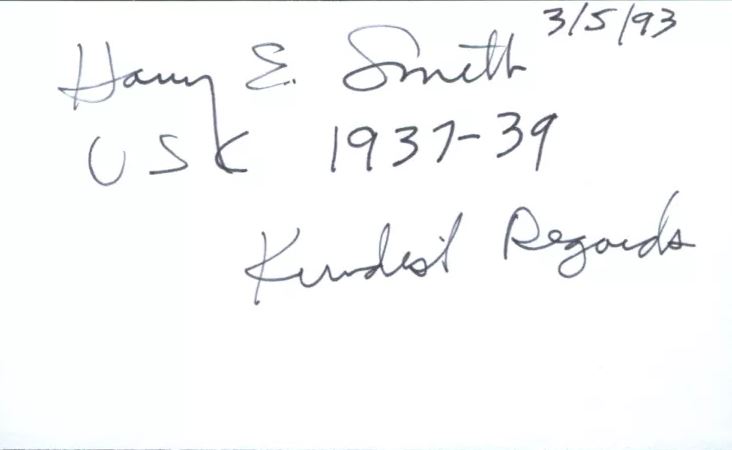 Harry E. Smith 3/5/93
USC 1937-39
Kindest Regards